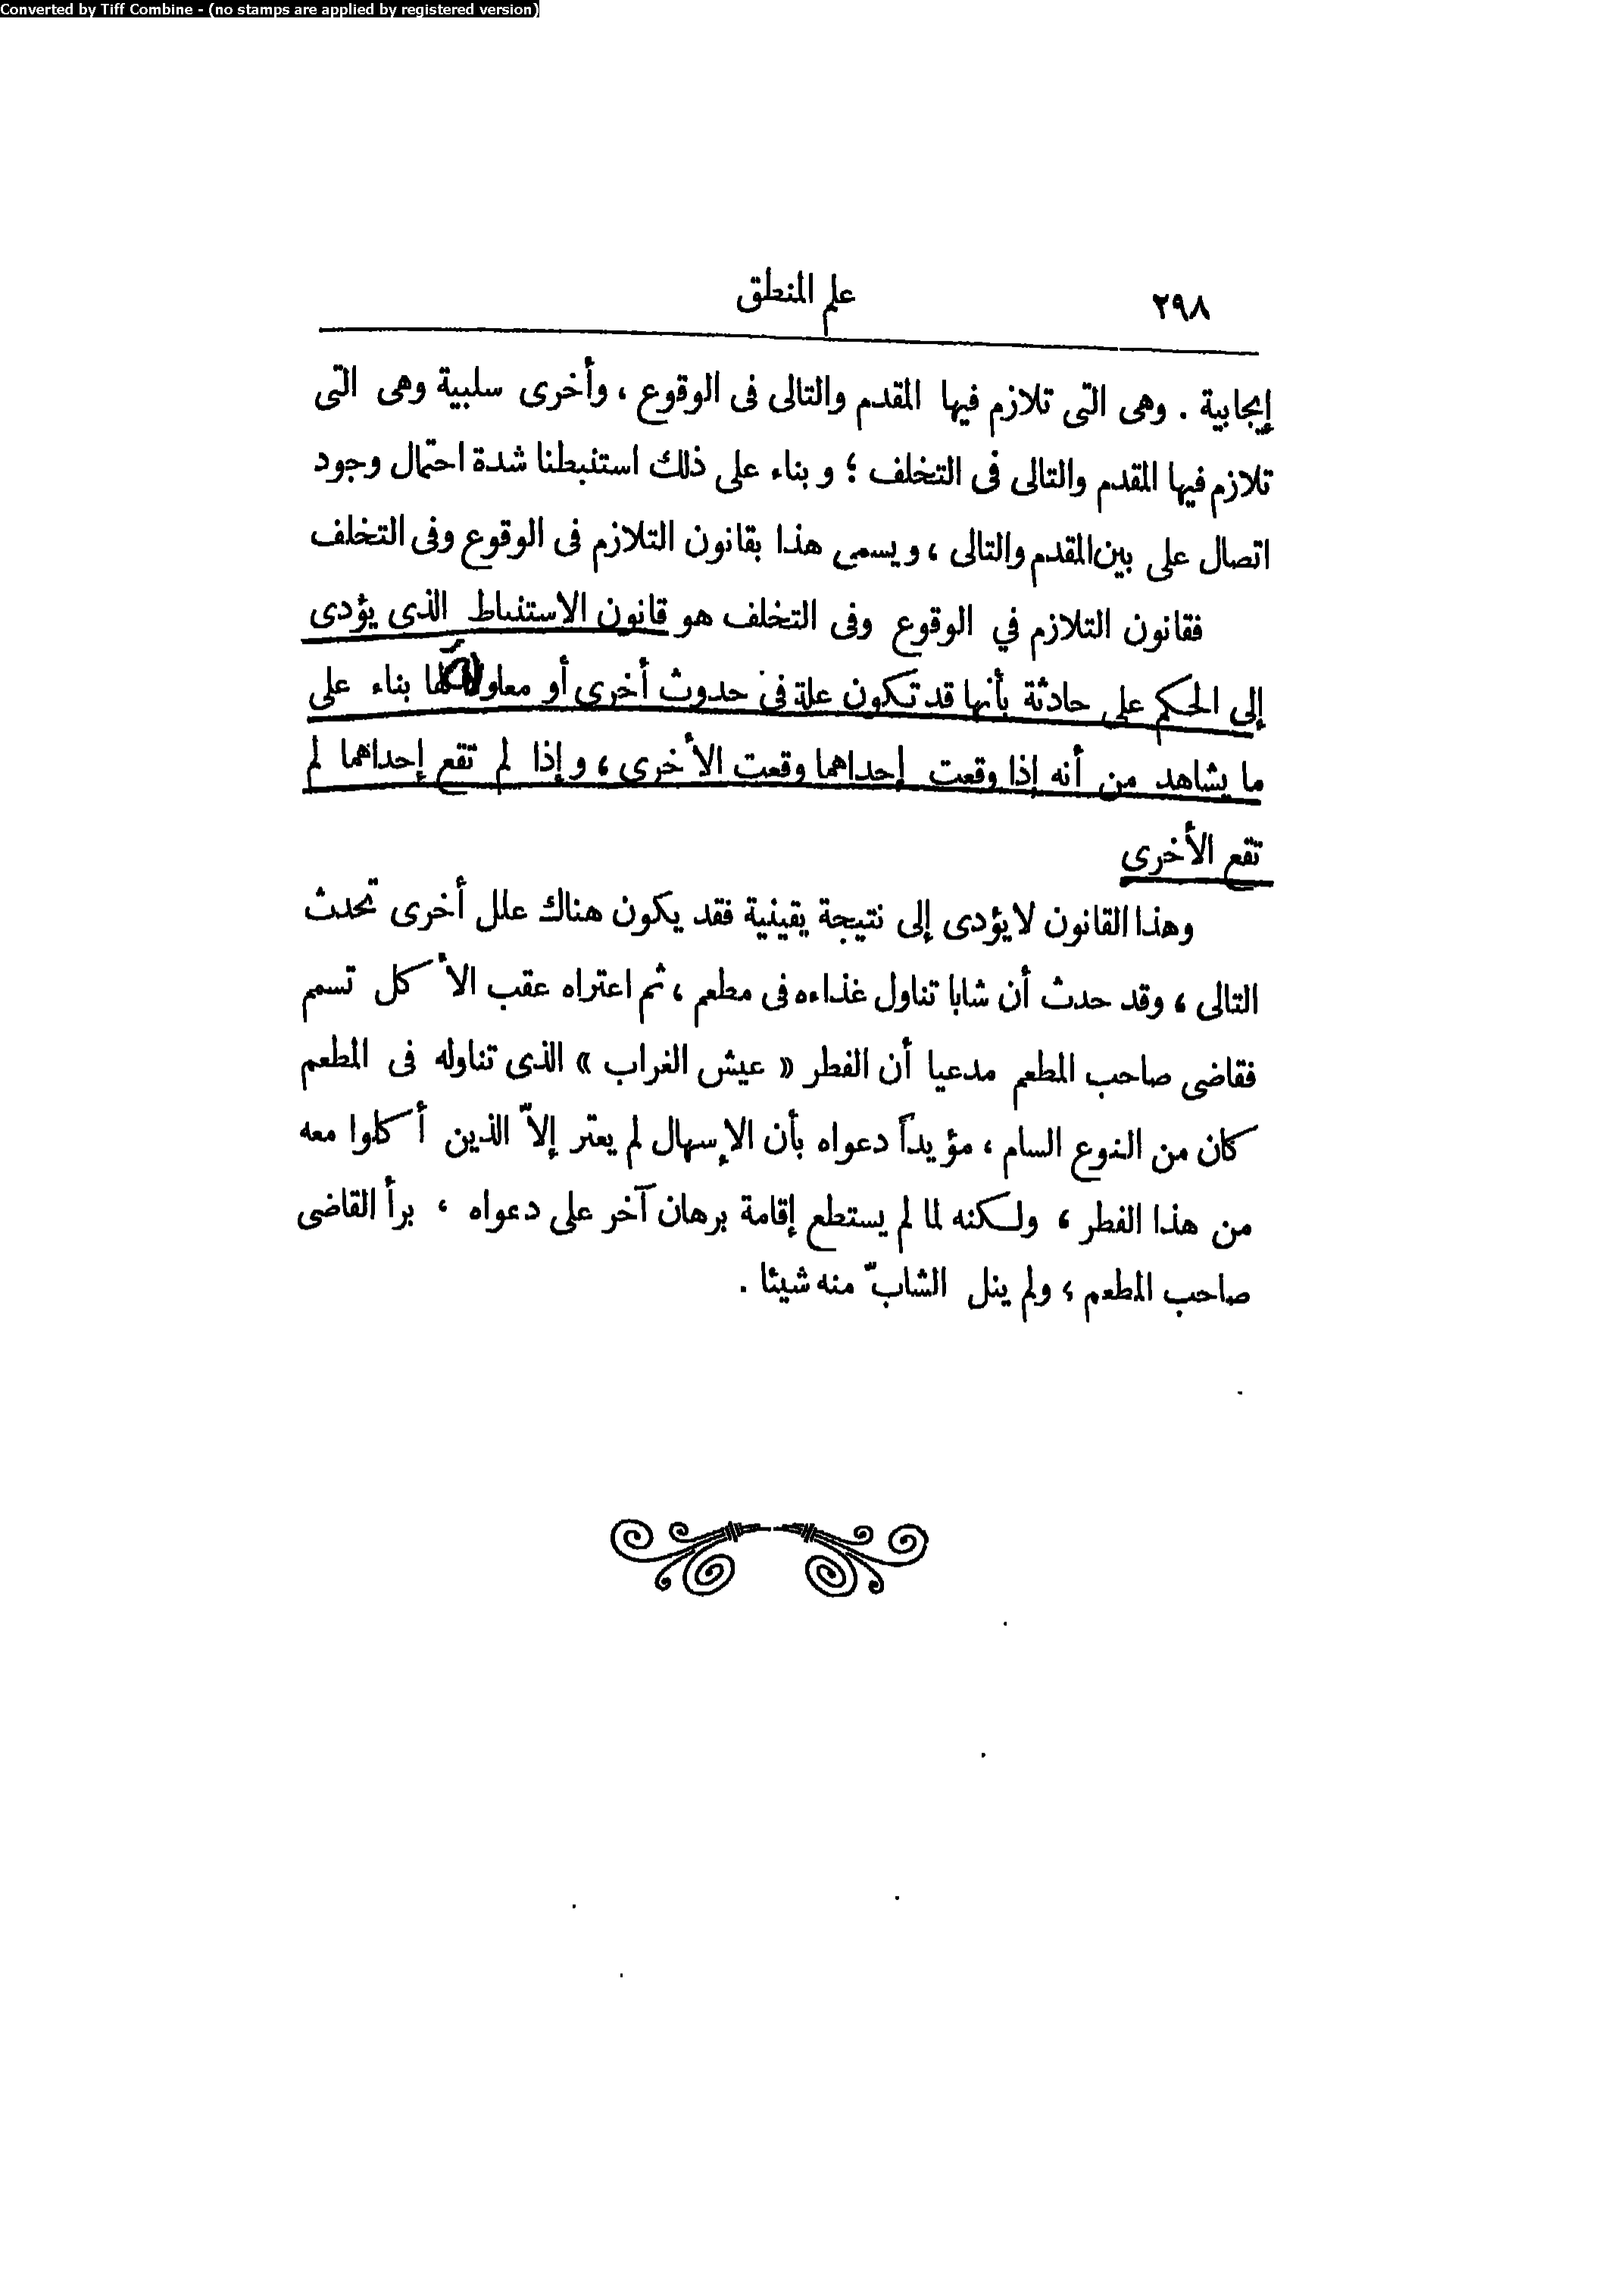 Converted by Tiff Combine - (no stamps are applied by registered version)
٢٩٨ علم المنطق
إيجابية . وهى التى تلازم فيها المقدم والتالى فى الوقوع ، وأخرى سلبية وهى التى
تلازم فيها المقدم والتالى فى التخلف ؛ و بناء على ذلك استنبطنا شدة احتمال وجود
اتصال على بين المقدم والتالى ، و يسمى هذا بقانون التلازم فى الوقوع وفى التخلف
فقانون التلازم في الوقوع وفى التخلف هو قانون الاستنباط الذى يؤدى
إلى الحكم على حادثة بأنها قد تكون علة فى حدوث أخرى أو معلولا لها بناء على
ما يشاهد من أنه إذا وقعت إحداهما وقعت الأخرى ، و إذا لم تقع إحداهما لم
تقع الأخرى
وهذا القانون لا يؤدى إلى نتيجة يقينية فقد يكون هناك علل أخرى تحدث
التالى ، وقد حدث أن شابا تناول غذاءه فى مطعم ، ثم اعتراه عقب الأكل تسمم
فقاضى صاحب المطعم مدعيا أن الفطر « عيش الغراب » الذى تناوله فى المطعم
كان من النوع السام ، مؤيداً دعواه بأن الإسهال لم يعتر إلاّ الذين أكلوا معه
من هذا الفطر ، ولكنه لما لم يستطع إقامة برهان آخر على دعواه ، برأ القاضى
صاحب المطعم ، ولم ينل الشابّ منه شيئا .